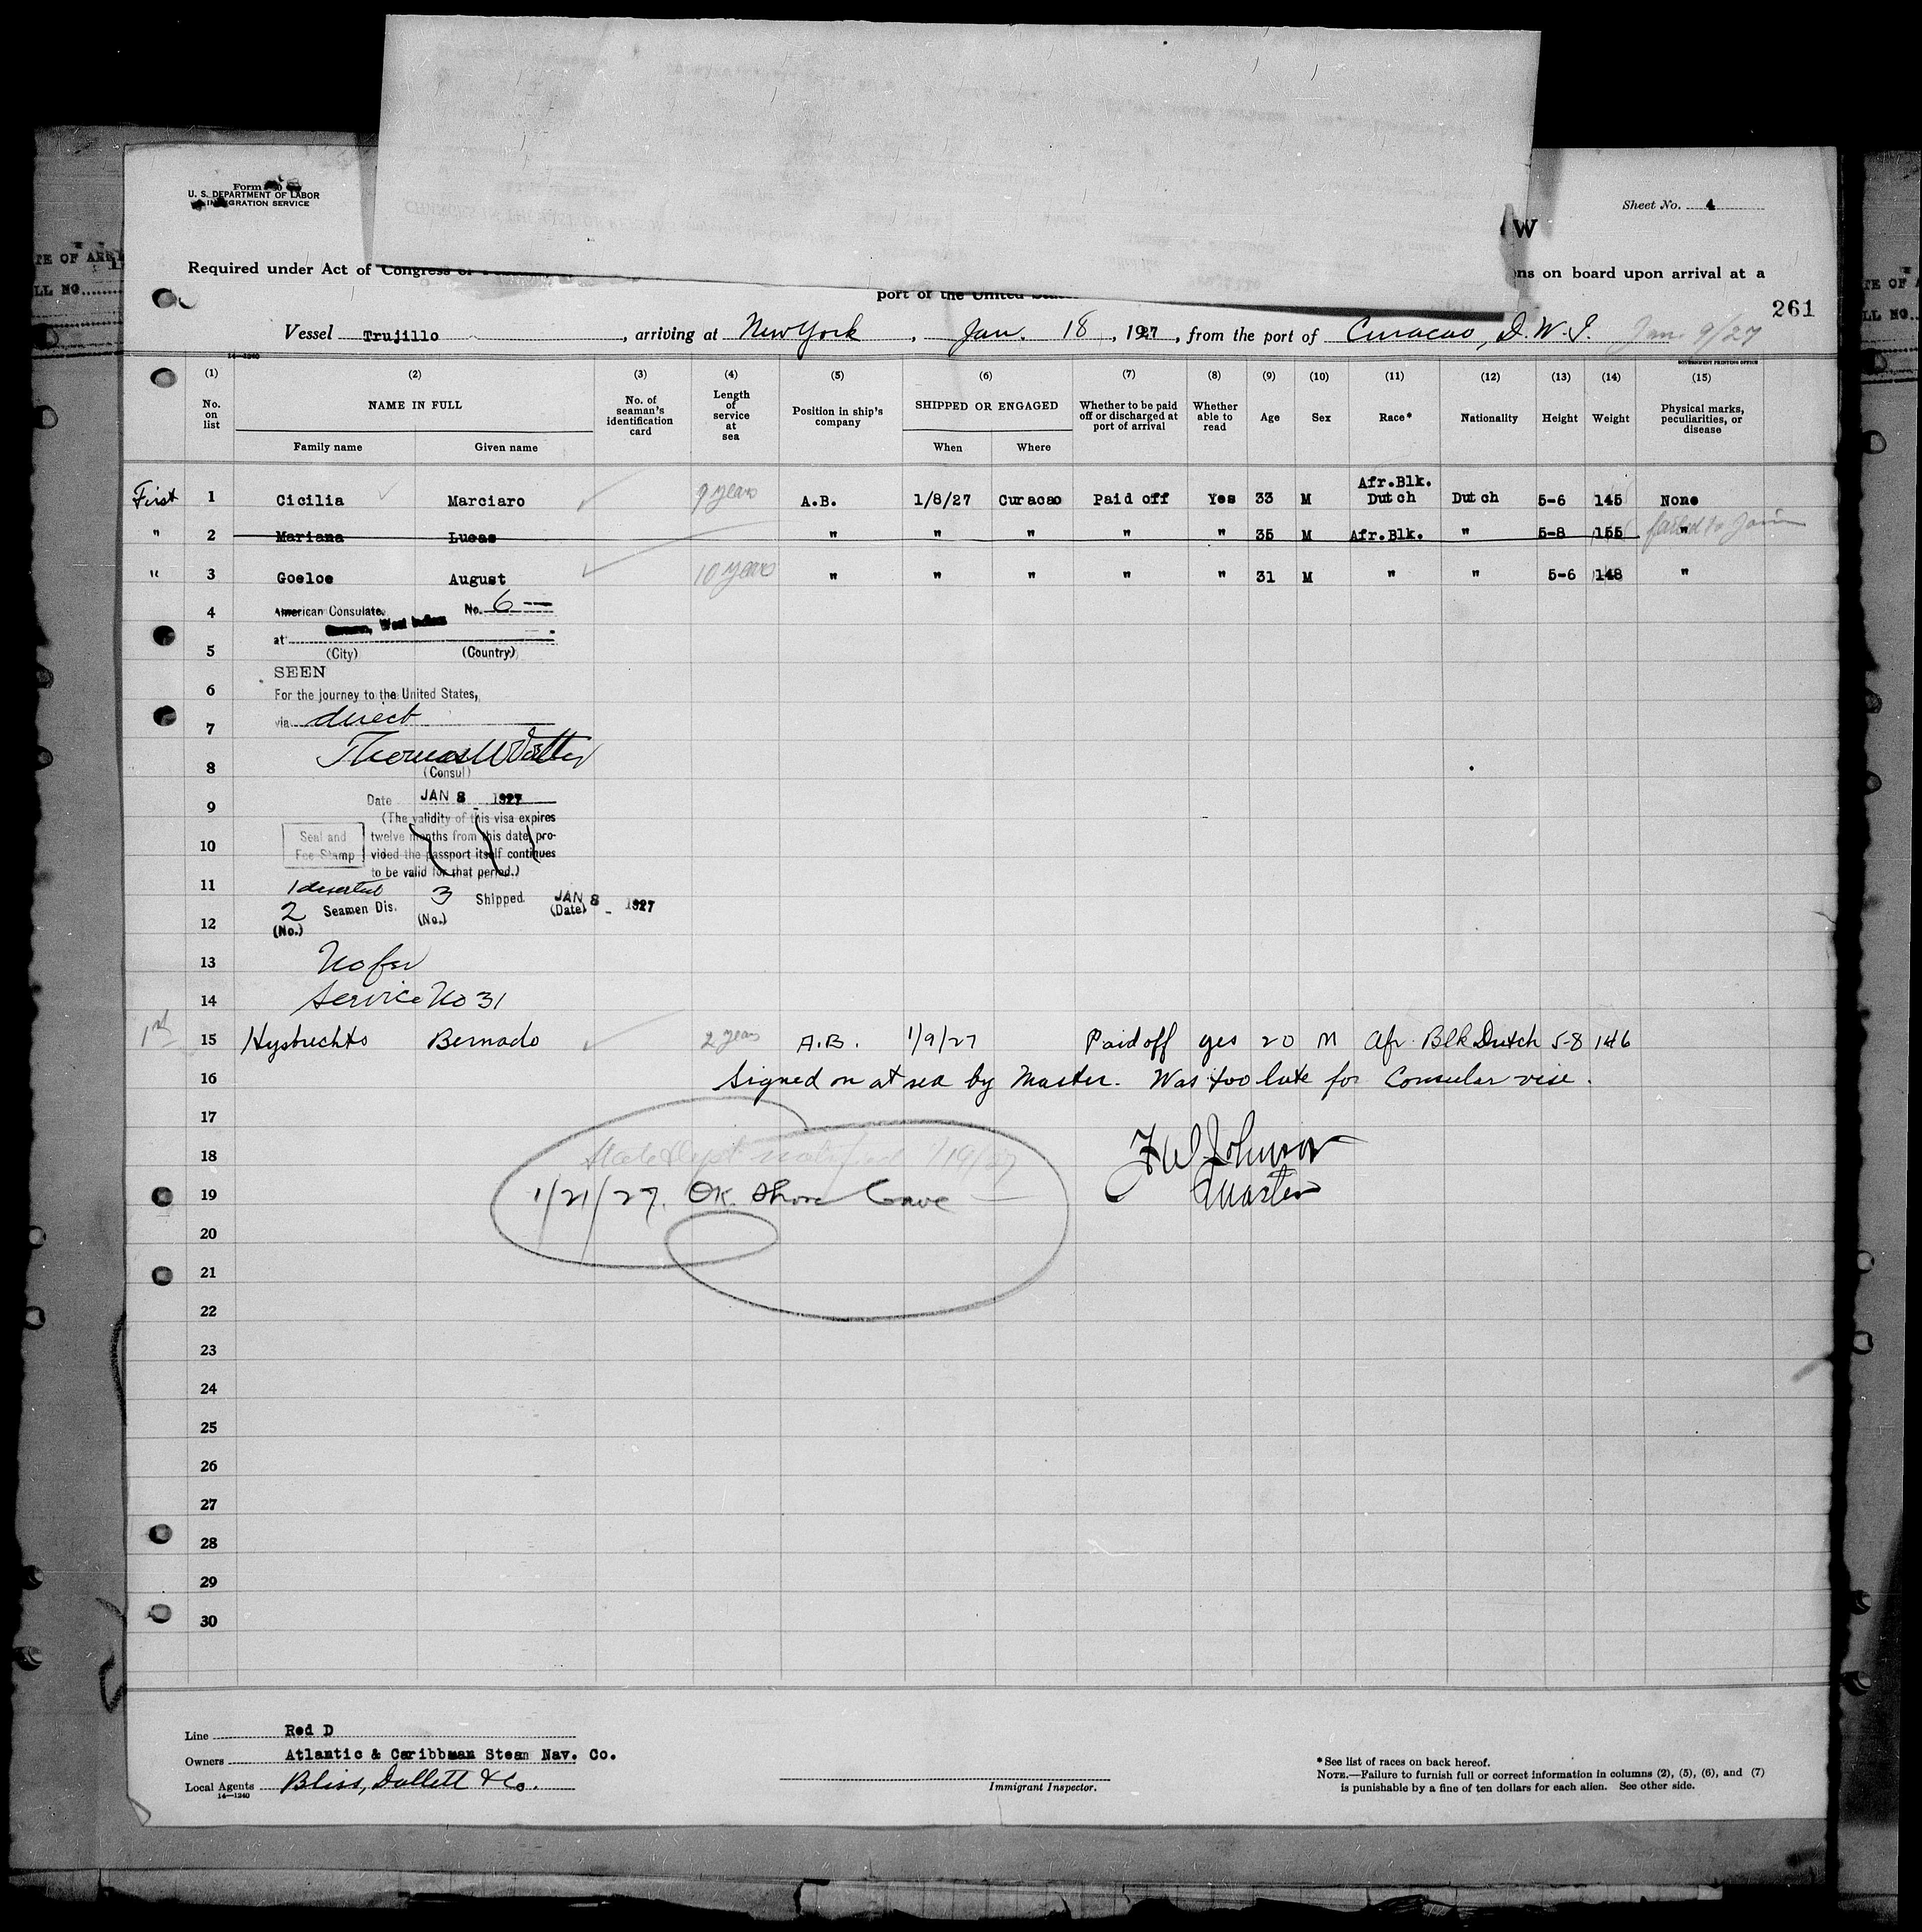 Form
U. S. DEPARTMENT OF LABOR
IMMIGRATION SERVICE
Sheet No. 4
W
Required under Act of Congress of
ns on board upon arrival at a
port of the United States
261
Vessel Trujillo, arriving at New York, Jan. 18, 1927, from the port of Curacao, D.W.I. Jan. 9/27
14—1240
GOVERNMENT PRINTING OFFICE
(1) (2) (3) (4) (5) (6) (7) (8) (9) (10) (11) (12) (13) (14) (15)
No. on list
NAME IN FULL
Family name
Given name
No. of seaman's identification card
Length of service at sea
Position in ship's company
SHIPPED OR ENGAGED
When
Where
Whether to be paid off or discharged at port of arrival
Whether able to read
Age
Sex
Race*
Nationality
Height
Weight
Physical marks, peculiarities, or disease
First 1 Cicilia Marciaro 9 years A.B. 1/8/27 Curacao Paid off Yes 33 M Afr.Blk. Dutch Dutch 5-6 145 None
" 2 Mariana Lucas " " " " " 35 M Afr.Blk. " 5-8 155 " failed to Join
" 3 Goeloe August 10 years " " " " " 31 M " " 5-6 148 "
4 American Consulate, No. 6
at West Indies
5 (City) (Country)
SEEN
6 For the journey to the United States,
7 via direct
8 (Consul)
9 Date JAN 8 1927
(The validity of this visa expires
10 Seal and Fee Stamp twelve months from this date, pro-
vided the passport itself continues
to be valid for that period.)
11 1 deserted
2 Seamen Dis. 3 Shipped JAN 8 - 1927
12 (No.) (No.) (Date)
13 No fee
14 Service No 31
1st 15 Hysbrechts Bernado 2 years A.B. 1/9/27 Paid off yes 20 M Afr. Blk Dutch 5-8 146
16 Signed on at sea by Master. Was too late for Consular vise.
17
18 State Dept notified 1/19/27
F W Johnson
19 1/21/27. OK. Shore Leave
Master
20
21
22
23
24
25
26
27
28
29
30
Line Red D
Owners Atlantic & Caribbean Steam Nav. Co.
Local Agents Bliss, Dallett & Co.
14—1240
Immigrant Inspector.
*See list of races on back hereof.
NOTE.—Failure to furnish full or correct information in columns (2), (5), (6), and (7)
is punishable by a fine of ten dollars for each alien. See other side.